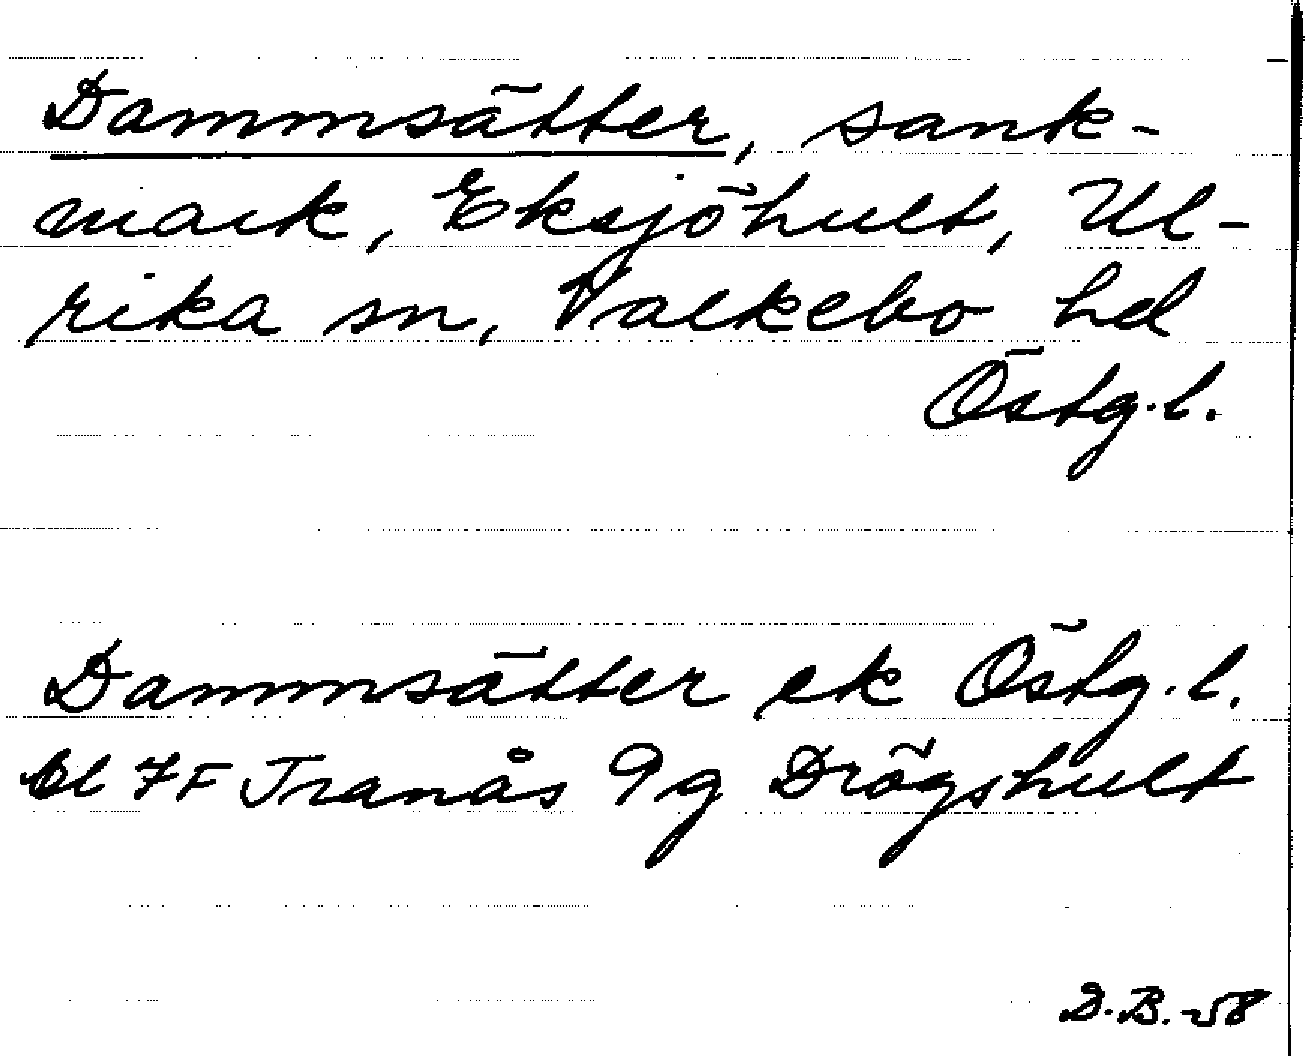 Dammsätter, sank-
mark, Eksjöhult, Ul-
rika sn, Valkebo hd
Östg.l.
Dammsätter ek Östg.l.
bl 7F Tranås 9g Drögshult
D.B.-58